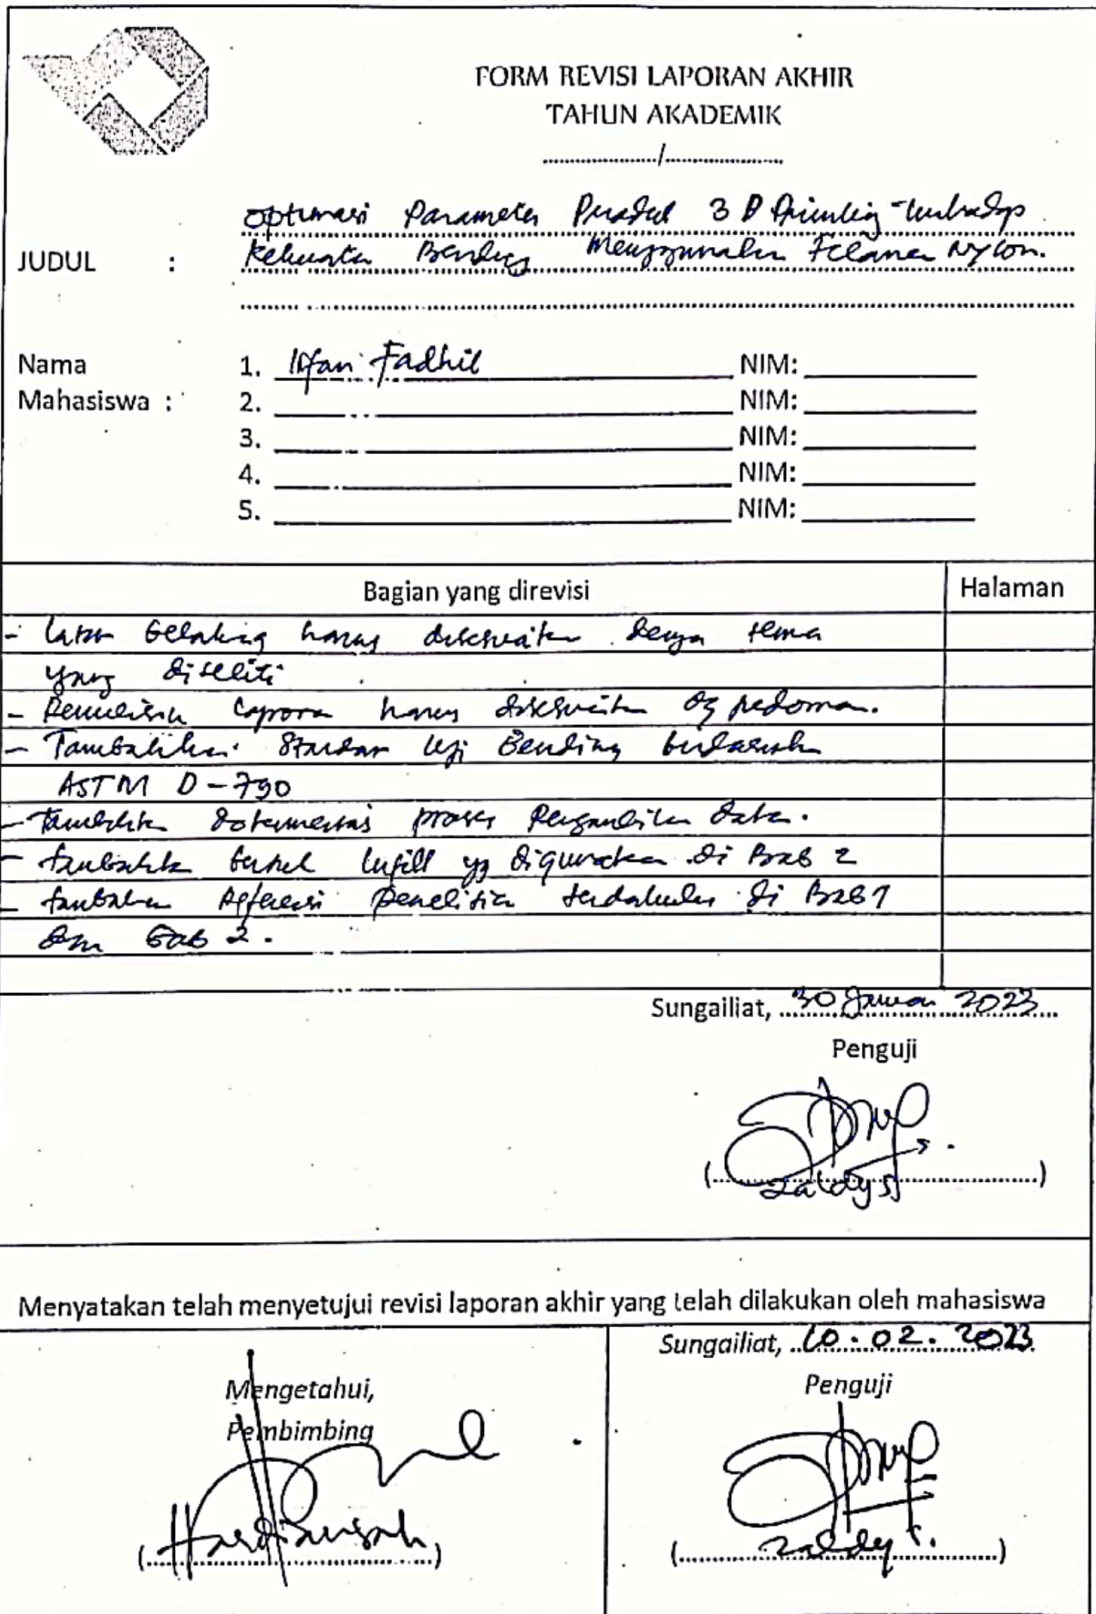 FORM REVISI LAPORAN AKHIR
TAHUN AKADEMIK
...................../.....................
JUDUL :
Optimasi Parameter Produk 3 D Printing terhadap
Kekuatan Bending Menggunakan Filamen Nylon.
Nama
Mahasiswa :
1. Irfan Fadhil NIM:
2. NIM:
3. NIM:
4. NIM:
5. NIM:
Bagian yang direvisi Halaman
- Latar belakang harus disesuaikan dengan tema
yang diteliti
- Penulisan laporan harus disesuaikan dg pedoman.
- Tambahkan Standar Uji Bending berdasarkan
ASTM D-790
- Tambahkan dokumentasi proses Pengambilan data.
- tambahkan bentuk infill yg digunakan di Bab 2
- tambahkan Referensi penelitian terdahulu di Bab 1
dan bab 2.
Sungailiat, 30 Januari 2023
Penguji
(Zaldy S)
Menyatakan telah menyetujui revisi laporan akhir yang telah dilakukan oleh mahasiswa
Mengetahui,
Pembimbing
(Hasdiansah)
Sungailiat, 10.02.2023
Penguji
(Zaldy S.)